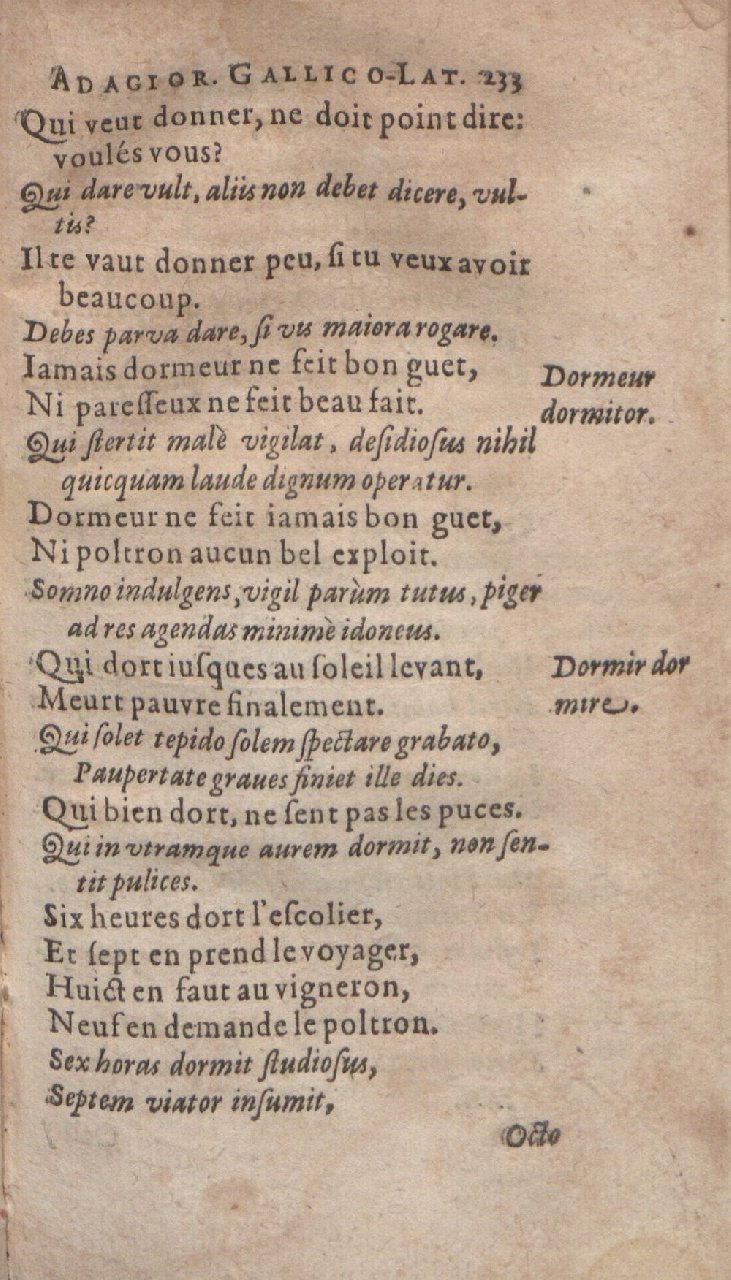 ADAGIOR. GALLICO-LAT. 233
Qui veut donner, ne doit point dire:
voulés vous?
Qui dare vult, aliis non debet dicere, vul-
tis?
Il te vaut donner peu, ſi tu veux avoir
beaucoup.
Debes parva dare, ſi vis maiora rogare.
Iamais dormeur ne feit bon guet,
Dormeur
Ni pareſſeux ne feit beau fait.
dormitor.
Qui ſtertit malè vigilat, deſidioſus nihil
quicquam laude dignum operatur.
Dormeur ne feit iamais bon guet,
Ni poltron aucun bel exploit.
Somno indulgens, vigil parùm tutus, piger
ad res agendas minimè idoneus.
Qui dort iuſques au ſoleil levant,
Dormir dor
Meurt pauvre finalement.
mire.
Qui ſolet tepido ſolem ſpectare grabato,
Paupertate graues finiet ille dies.
Qui bien dort, ne ſent pas les puces.
Qui in vtramque aurem dormit, non ſen-
tit pulices.
Six heures dort l'eſcolier,
Et ſept en prend le voyager,
Huict en faut au vigneron,
Neuf en demande le poltron.
Sex horas dormit ſtudioſus,
Septem viator inſumit,
Octo